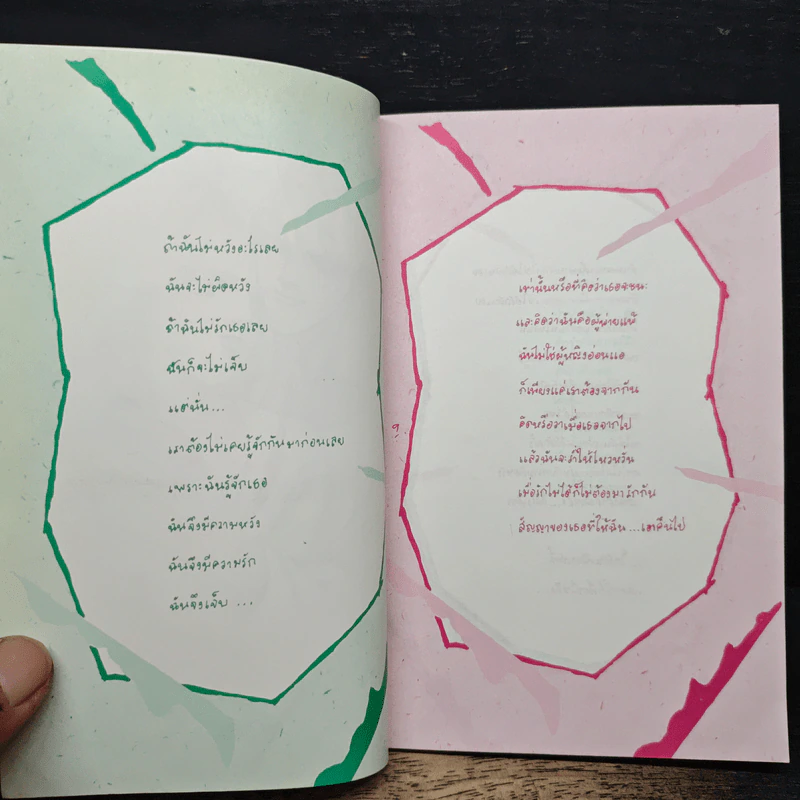 ถ้าฉันไม่หวังอะไรเลย
ฉันจะไม่ผิดหวัง
ถ้าฉันไม่รักเธอเลย
ฉันก็จะไม่เจ็บ
แต่นั่น...
เราต้องไม่เคยรู้จักกันมาก่อนเลย
เพราะฉันรู้จักเธอ
ฉันจึงมีความหวัง
ฉันจึงมีความรัก
ฉันจึงเจ็บ ...
เท่านั้นหรือที่คิดว่าเธอชนะ
และคิดว่าฉันคือผู้พ่ายแพ้
ฉันไม่ใช่ผู้หญิงอ่อนแอ
ก็เพียงแค่เราต้องจากกัน
คิดหรือว่าเมื่อเธอจากไป
แล้วฉันจะร่ำไห้ไหวหวั่น
เมื่อรักไม่ได้ก็ไม่ต้องมารักกัน
สัญญาของเธอที่ให้ฉัน...เอาคืนไป